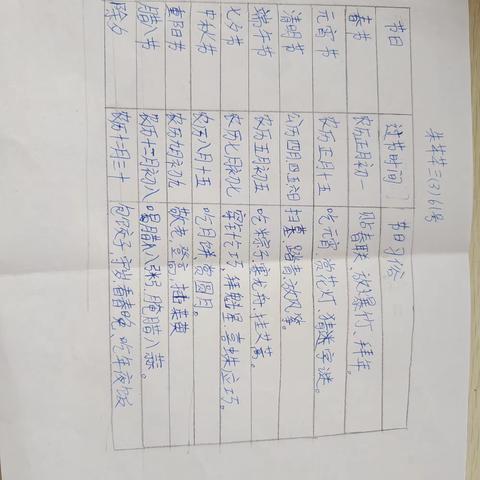 三(3)61号
节日 过节时间 节日习俗
春节 农历正月初一 贴春联、放爆竹、拜年。
元宵节 农历正月十五 吃元宵、赏花灯、猜迷字谜。
清明节 公历四月四五日 扫墓、踏青、放风筝。
端午节 农历五月初五 吃粽子、赛龙舟、挂艾蒿。
七夕节 农历七月初七 穿针乞巧、喜蛛应巧。
中秋节 农历八月十五 吃月饼、赏圆月。
重阳节 农历九月初九 敬老、登高、插茱萸
腊八节 农历十二月初八 喝腊八粥、腌腊八蒜。
除夕 农历十二月三十 包饺子、看春晚、吃年夜饭